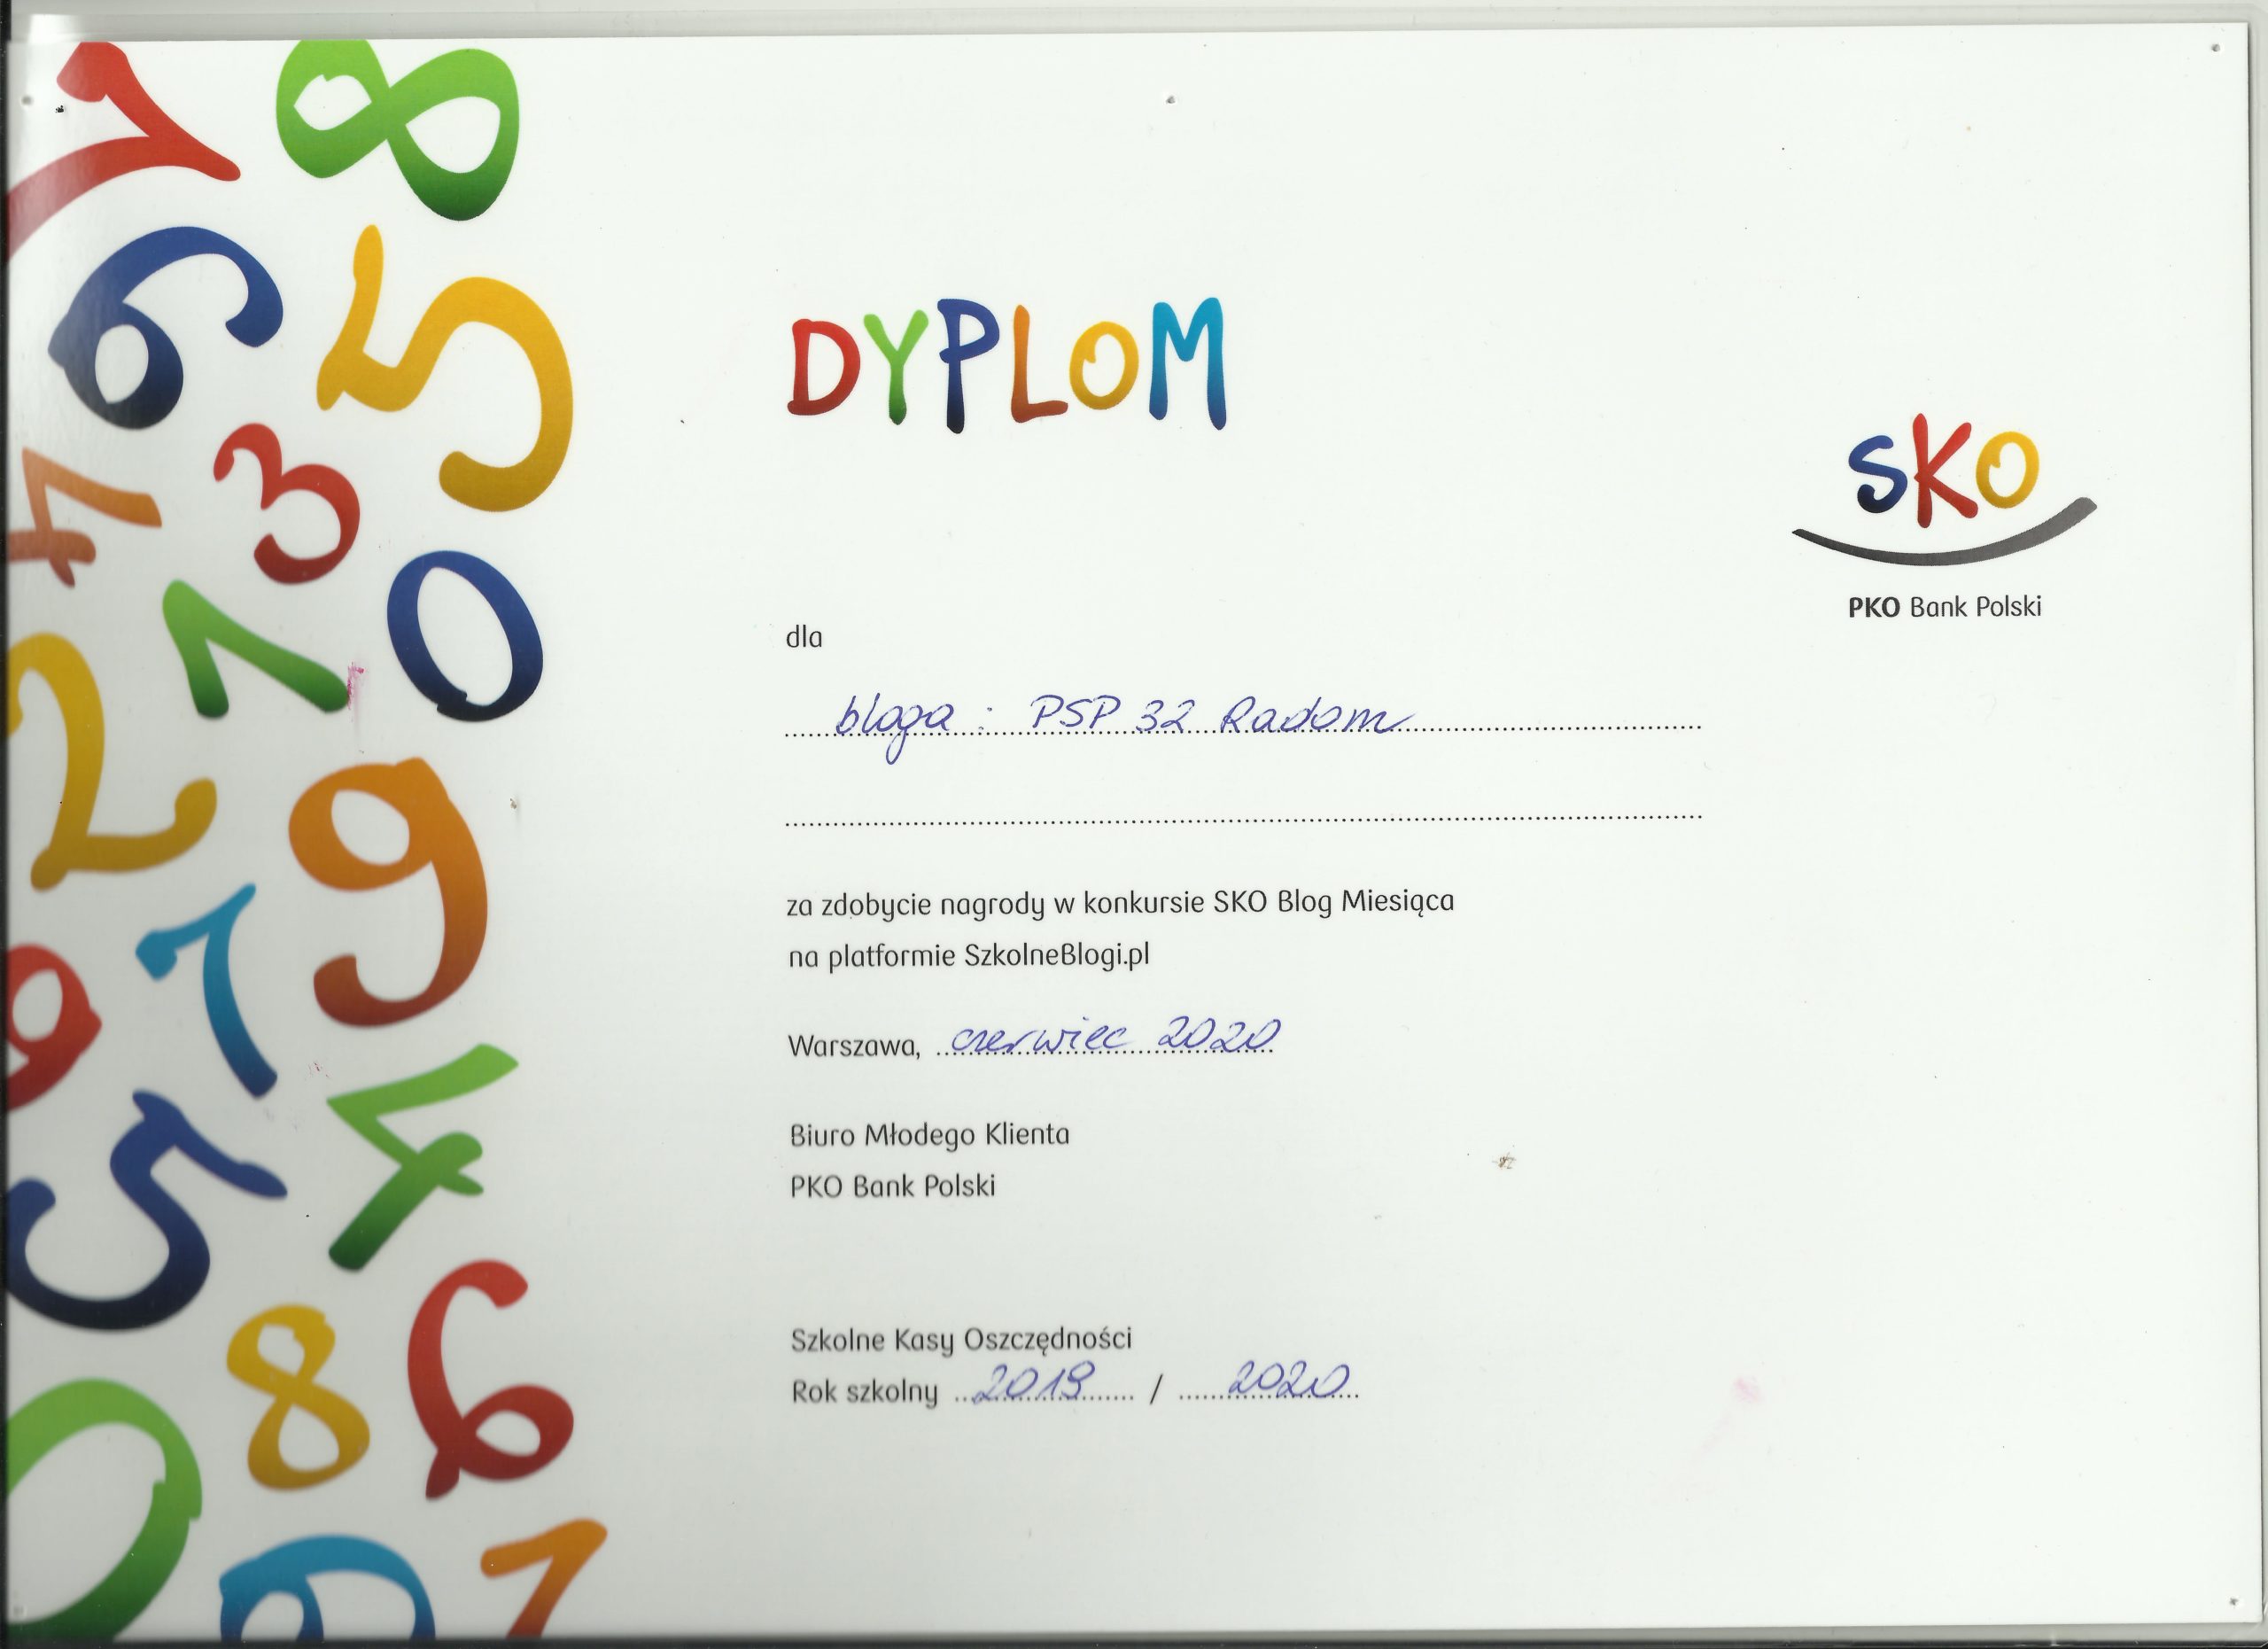 DYPLOM
SKO
PKO Bank Polski
dla
bloga : PSP 32 Radom
za zdobycie nagrody w konkursie SKO Blog Miesiąca
na platformie SzkolneBlogi.pl
Warszawa, czerwiec 2020
Biuro Młodego Klienta
PKO Bank Polski
Szkolne Kasy Oszczędności
Rok szkolny 2019 / 2020